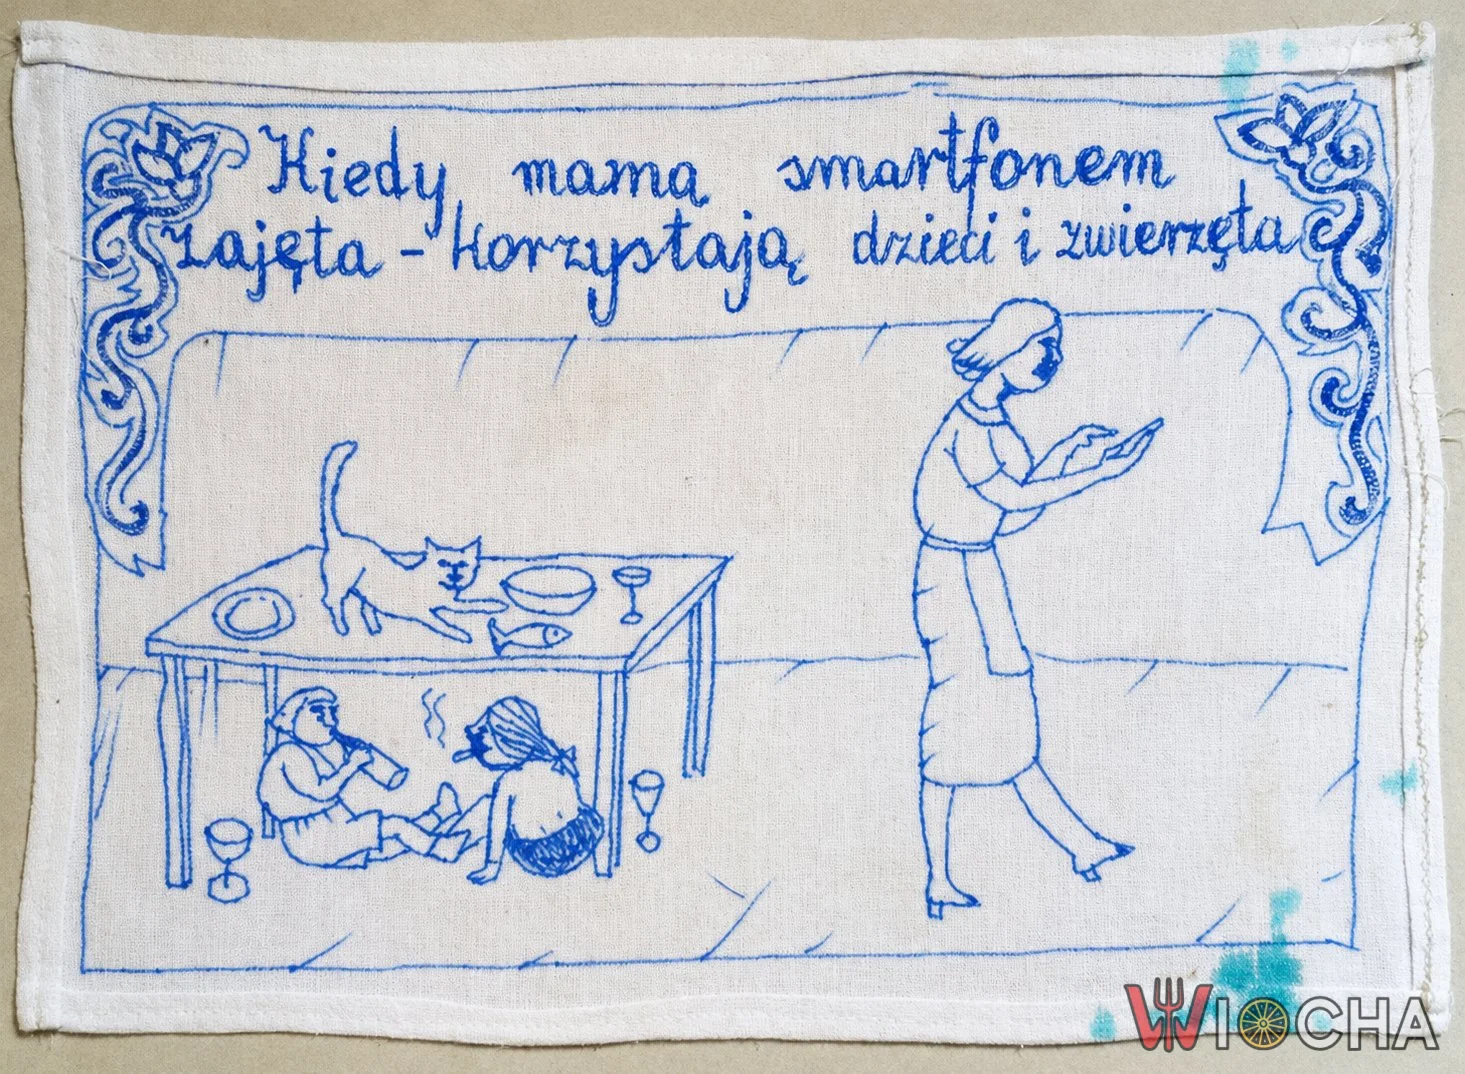 Kiedy mama smartfonem
zajęta - korzystają dzieci i zwierzęta
WIOCHA